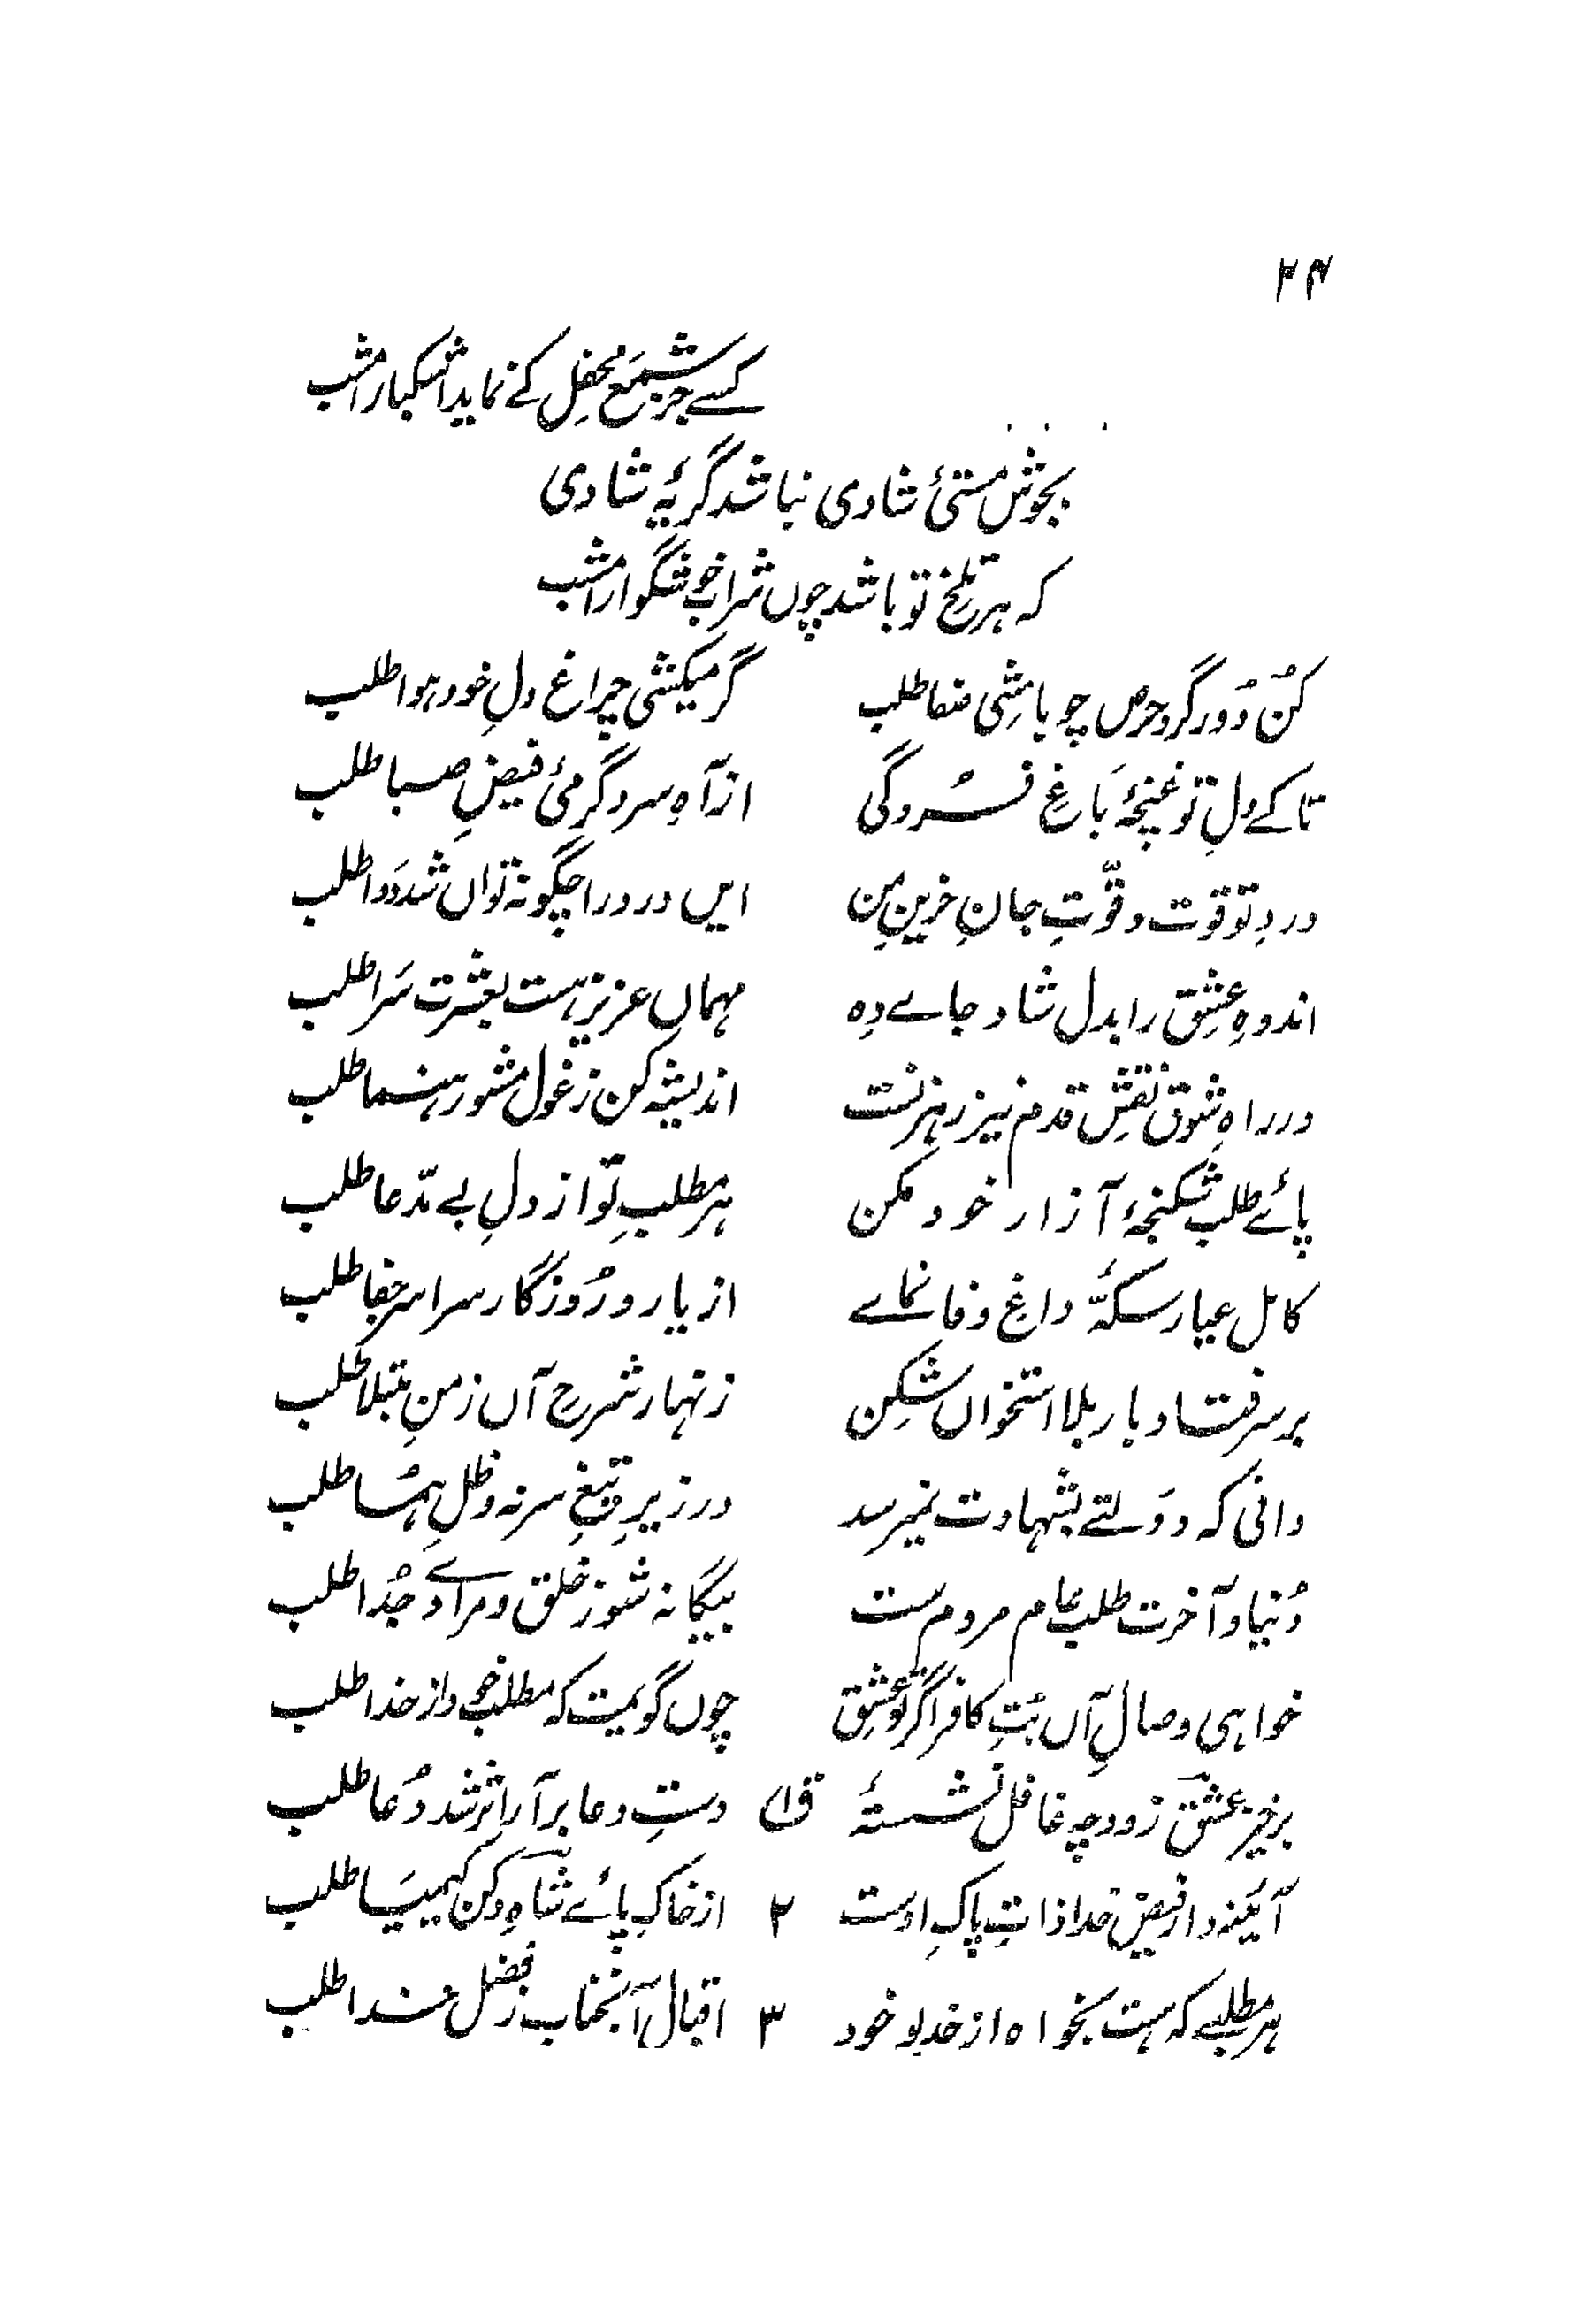 ۲۴
کسے جز شمعِ محفل کے نماید اشکبار امشب
بجوش مستیٔ شادی نباشد گریۂ شادی
کہ ہر تلخ تو باشد چوں شراب خوشگوار امشب
کُن دُور گردِ حرص چو باشِی صفا طلب
گر میکشی چراغ دلِ خود ہوا طلب
تا کے دلِ تو غنچۂ بَاغِ فسُردگی
از آہِ سرد گرمیٔ فیضِ صبا طلب
دردِ تو قوت و قوّتِ جانِ حزینِ من
ایں درد را چگونہ تواں شد دَوا طلب
اندوہِ عشِق را بدل شاد جاے دِہ
مہماں عزیز ہست بعشرت سَرا طلب
در راہِ شوق نقشِ قدم نیز رہزنست
اندیشہ کن ز غول مشو رہنما طلب
پائے طلب شکنجۂ آزار خود مکن
ہر مطلبِ تو از دلِ بے مدّعا طلب
کامل عیار سکۂ داغِ وفا نماے
از یار و رُوزگار سراسر جفا طلب
بر سر فتاد بار بلا استخواں شکِن
زنہار شرحِ آں ز منِ مبتلا طلب
دانی کہ دَولتے بشہادت نمیرسد
در زیرِ تیغِ سر نہ و ظلِ ہمُا طلب
دُنیا و آخرت طلب عام مردم ست
بیگانہ شو ز خلق و مرادے جُدا طلب
خواہی وصالِ آں بُتِ کافر اگر تو عشِق
چوں گویمت کہ مطلب خود از خدا طلب
برخیز عشق زود چہ غافل نشستۂ
ق۱ دستِ دعا برآر اثر شد دُعا طلب
آئینہ دار فیض خدا ذاتِ پاکِ اوست
۲ از خاکِ پائے شاہِ دکن کیمیَا طلب
ہر مطلبے کہ ہست بخواہ از خدیو خود
۳ اقبال آنجناب ز فضل خدا طلب